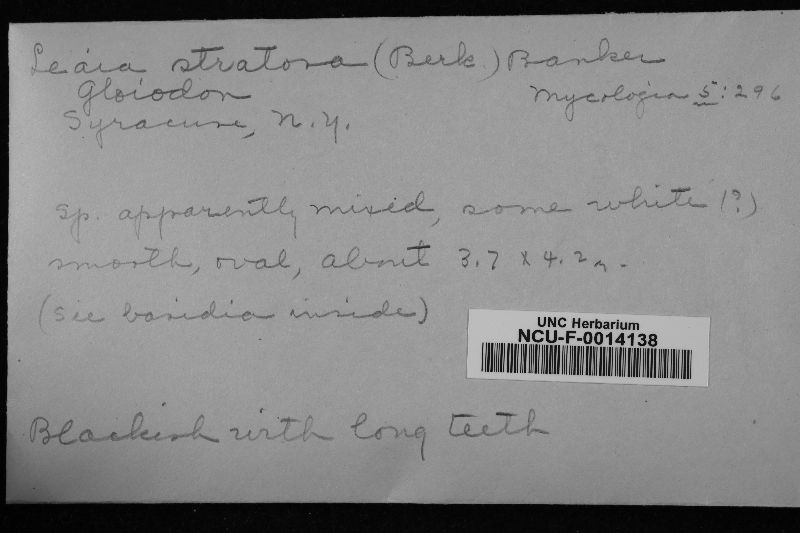 Leaia stratosa (Berk.) Banker
Gloiodon
Mycologia 5: 296
Syracuse, N.Y.
sp. apparently mixed, some white (?)
smooth, oval, about 3.7 x 4.2 m.
(see basidia inside)
UNC Herbarium
NCU-F-0014138
Blackish with long teeth